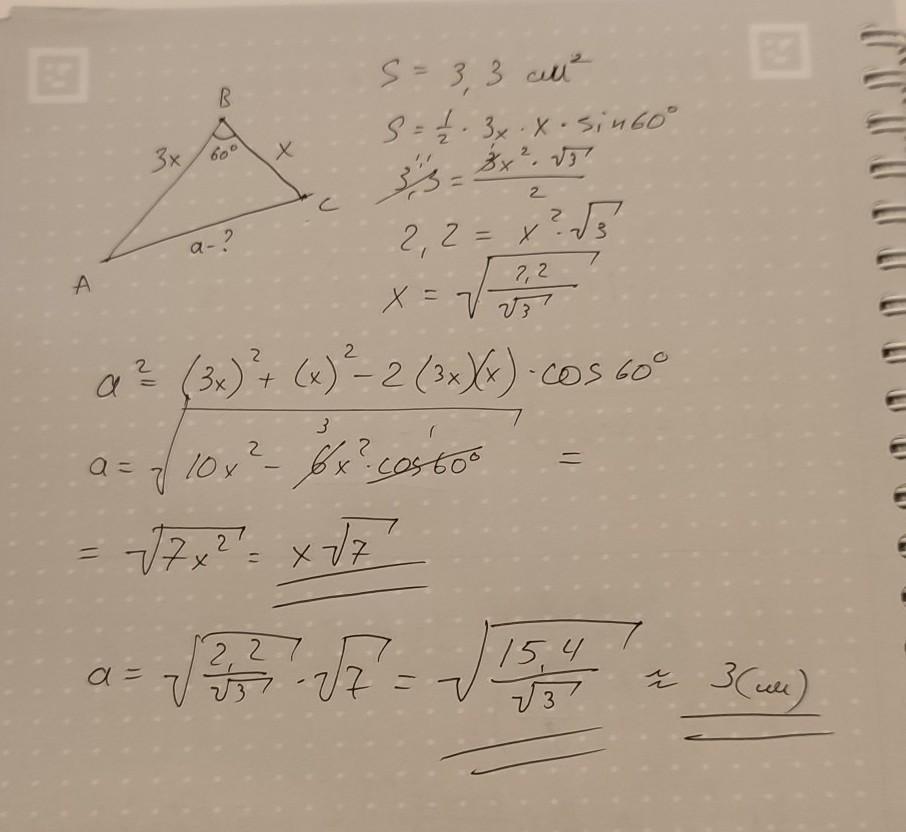 B
3x 60° x
C
a-?
A
S = 3,3 см²
S = 1/2 · 3x · x · sin60°
3,3 = 3x² · √3 / 2
1,1 1
2,2 = x² · √3
x = √(2,2/√3)
a² = (3x)² + (x)² - 2(3x)(x) · cos 60°
3 1
a = √(10x² - 6x² · cos60°) =
= √(7x²) = x√7
a = √(2,2/√3) · √7 = √(15,4/√3) ≈ 3(см)